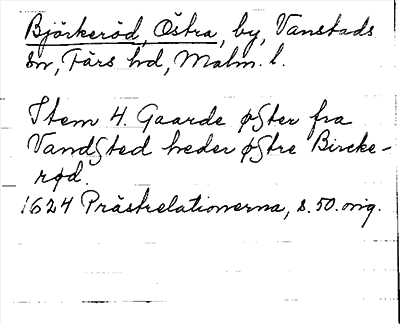 Björkeröd, Östra, by, Vanstads
sn, Färs hd, Malm. l.
Item 4. Gaarde øster fra
Vandsted heder østre Bircke-
rød.
1624 Prästrelationerna, s. 50. orig.